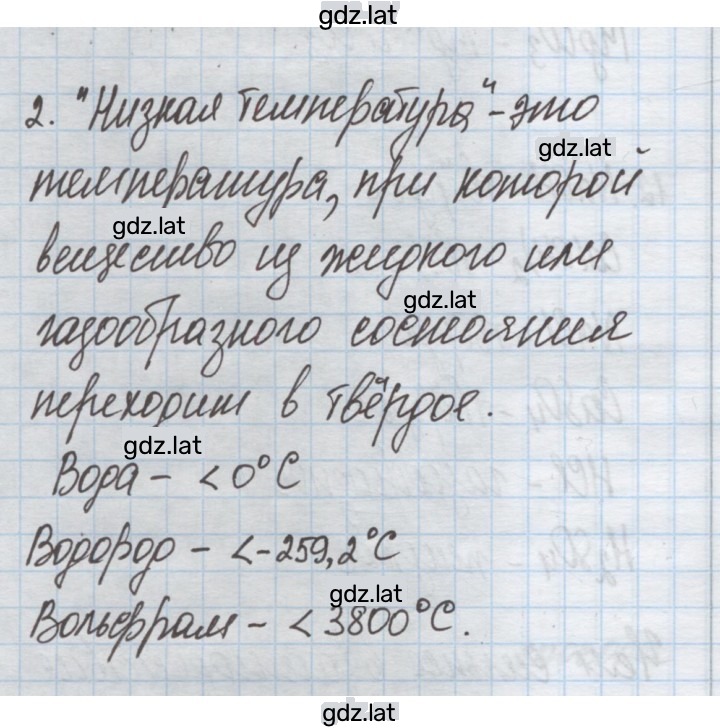 gdz.lat
2. "Низкая температура" - это
gdz.lat
температура, при которой
gdz.lat
вещество из жидкого или
gdz.lat
газообразного состояния
переходит в твёрдое.
gdz.lat
Вода - < 0°C
Водород - < -259,2°C
gdz.lat
Вольфрам - < 3800°C.
gdz.lat